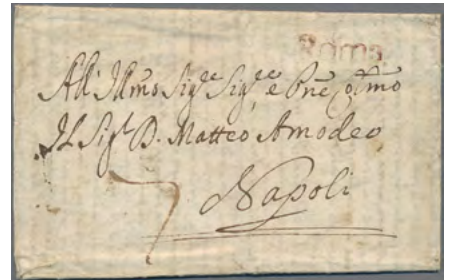 Roma
All' Illmo Sigre Sigre e Pne Colmo
Il Sigr D. Matteo Amodeo
7 Napoli